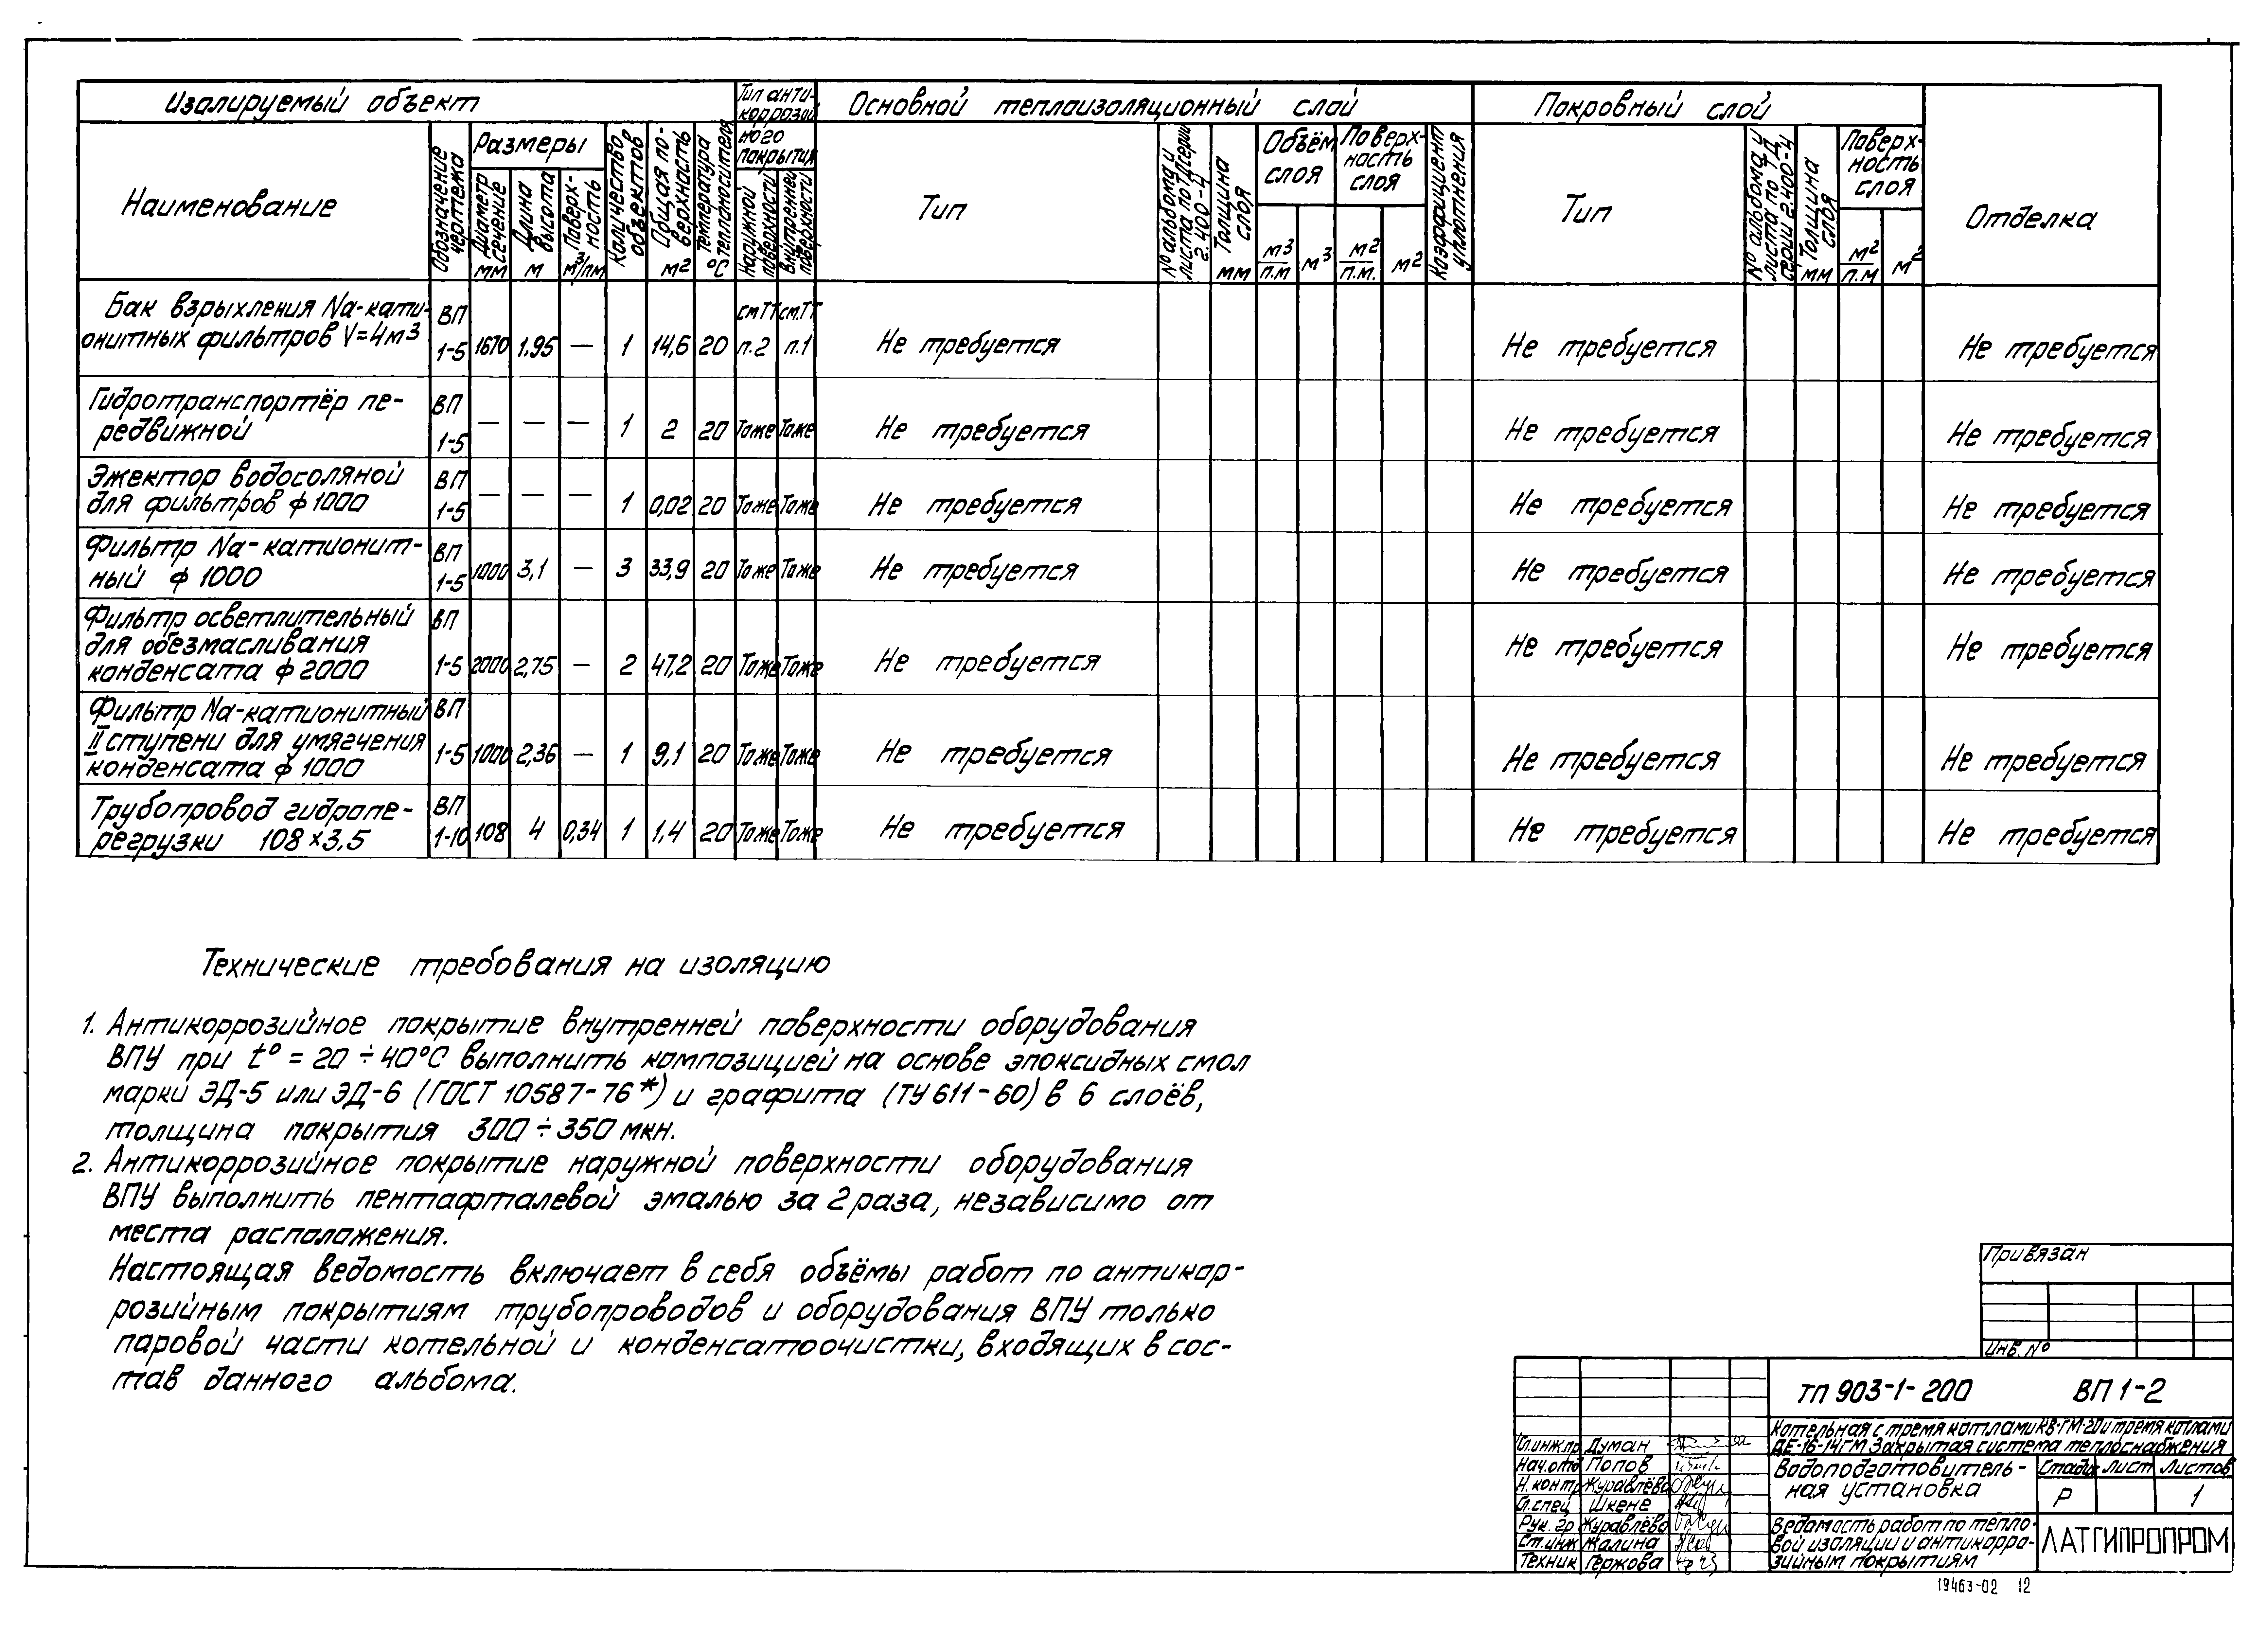 Изолируемый объект
Тип анти-
коррозий
ного
покрытия
Основной теплоизоляционный слой
Покровный слой
Отделка
Наименование
Обозначение
чертежа
Размеры
Диаметр
сечение
мм
Длина
высота
м
Поверх-
ность
м3/пм
Количество
объектов
Общая по-
верхность
м2
Температура
теплоносителя
°С
Наружной
поверхности
Внутренней
поверхности
Тип
№ альбома и
листа по ТД серии
2.400-4
Толщина
слоя
мм
Объём
слоя
м3/п.м
м3
Поверх-
ность
слоя
м2/п.м.
м2
Коэффициент
уплотнения
Тип
№ альбома и
листа по ТД
серии 2.400-4
Толщина
слоя
мм
Поверх-
ность
слоя
м2/п.м
м2
Бак взрыхления Na-кати-
онитных фильтров V=4м3 ВП 1-5 1670 1,95 — 1 14,6 20 см ТТ п.2 см.ТТ п.1 Не требуется Не требуется Не требуется
Гидротранспортёр пе-
редвижной ВП 1-5 — — — 1 2 20 Тоже Тоже Не требуется Не требуется Не требуется
Эжектор водосоляной
для фильтров ф 1000 ВП 1-5 — — — 1 0,02 20 Тоже Тоже Не требуется Не требуется Не требуется
Фильтр Na-катионит-
ный ф 1000 ВП 1-5 1000 3,1 — 3 33,9 20 Тоже Тоже Не требуется Не требуется Не требуется
Фильтр осветлительный
для обезмасливания
конденсата ф 2000 ВП 1-5 2000 2,75 — 2 47,2 20 Тоже Тоже Не требуется Не требуется Не требуется
Фильтр Na-катионитный
II ступени для умягчения
конденсата ф 1000 ВП 1-5 1000 2,36 — 1 9,1 20 Тоже Тоже Не требуется Не требуется Не требуется
Трубопровод гидропе-
регрузки 108×3,5 ВП 1-10 108 4 0,34 1 1,4 20 Тоже Тоже Не требуется Не требуется Не требуется
Технические требования на изоляцию
1. Антикоррозийное покрытие внутренней поверхности оборудования
ВПУ при t° = 20 ÷ 40°С выполнить композицией на основе эпоксидных смол
марки ЭД-5 или ЭД-6 (ГОСТ 10587-76*) и графита (ТУ 611-60) в 6 слоёв,
толщина покрытия 300 ÷ 350 мкн.
2. Антикоррозийное покрытие наружной поверхности оборудования
ВПУ выполнить пентафталевой эмалью за 2 раза, независимо от
места расположения.
Настоящая ведомость включает в себя объёмы работ по антикор-
розийным покрытиям трубопроводов и оборудования ВПУ только
паровой части котельной и конденсатоочистки, входящих в сос-
тав данного альбома.
Привязан
Инв. №
ТП 903-1-200 ВП 1-2
Котельная с тремя котлами КВ-ГМ-20 и тремя котлами
ДЕ-16-14ГМ Закрытая система теплоснабжения
Гл.инж.пр Думан
Нач.отд Попов
Н.контр Журавлёва
Гл.спец Шкене
Рук.гр Журавлёва
Ст.инж Жалина
Техник Гержова
Водоподготовитель-
ная установка
Стадия Лист Листов
Р 1
Ведомость работ по тепло-
вой изоляции и антикорро-
зийным покрытиям
ЛАТГИПРОПРОМ
19463-02 12